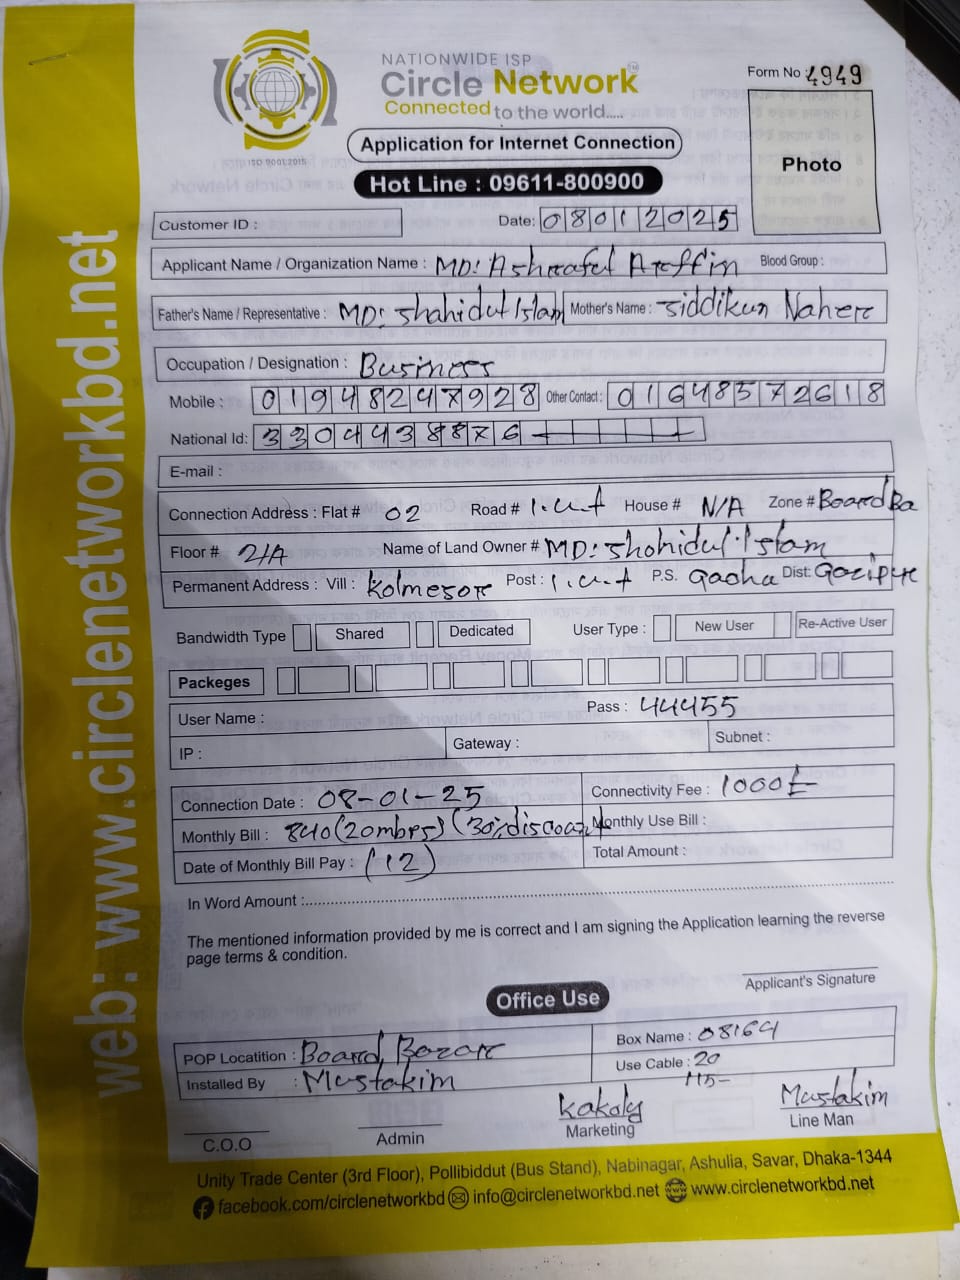 NATIONWIDE ISP
Circle Network™
Connected to the world.....
ISO 9001:2015
Form No : 4949
Photo
Application for Internet Connection
Hot Line : 09611-800900
Customer ID :
Date: 08012025
Applicant Name / Organization Name : MD: Ashraful Areffin Blood Group :
Father's Name / Representative : MD: Shahidul Islam Mother's Name : Siddikun Naher
Occupation / Designation : Business
Mobile : 01948247928 Other Contact : 01648572618
National Id: 3304438876
E-mail :
Connection Address : Flat # 02 Road # I.U.T House # N/A Zone # Board Ba
Floor # 2/A Name of Land Owner # MD: Shohidul Islam
Permanent Address : Vill : Kolmesor Post : I.U.T P.S. Gacha Dist: Gazipur
Bandwidth Type Shared Dedicated User Type : New User Re-Active User
Packeges
User Name : Pass : 44455
IP : Gateway : Subnet :
Connection Date : 08-01-25 Connectivity Fee : 1000
Monthly Bill : 840 (20mbps) (30% discount Monthly Use Bill :
Date of Monthly Bill Pay : (12) Total Amount :
In Word Amount :
The mentioned information provided by me is correct and I am signing the Application learning the reverse
page terms & condition.
Applicant's Signature
Office Use
POP Locatition : Board Bazar Box Name : 08164
Installed By : Mustakim Use Cable : 20
Kakoly Mustakim
C.O.O Admin Marketing Line Man
Unity Trade Center (3rd Floor), Pollibiddut (Bus Stand), Nabinagar, Ashulia, Savar, Dhaka-1344
facebook.com/circlenetworkbd info@circlenetworkbd.net www.circlenetworkbd.net
web: www.circlenetworkbd.net